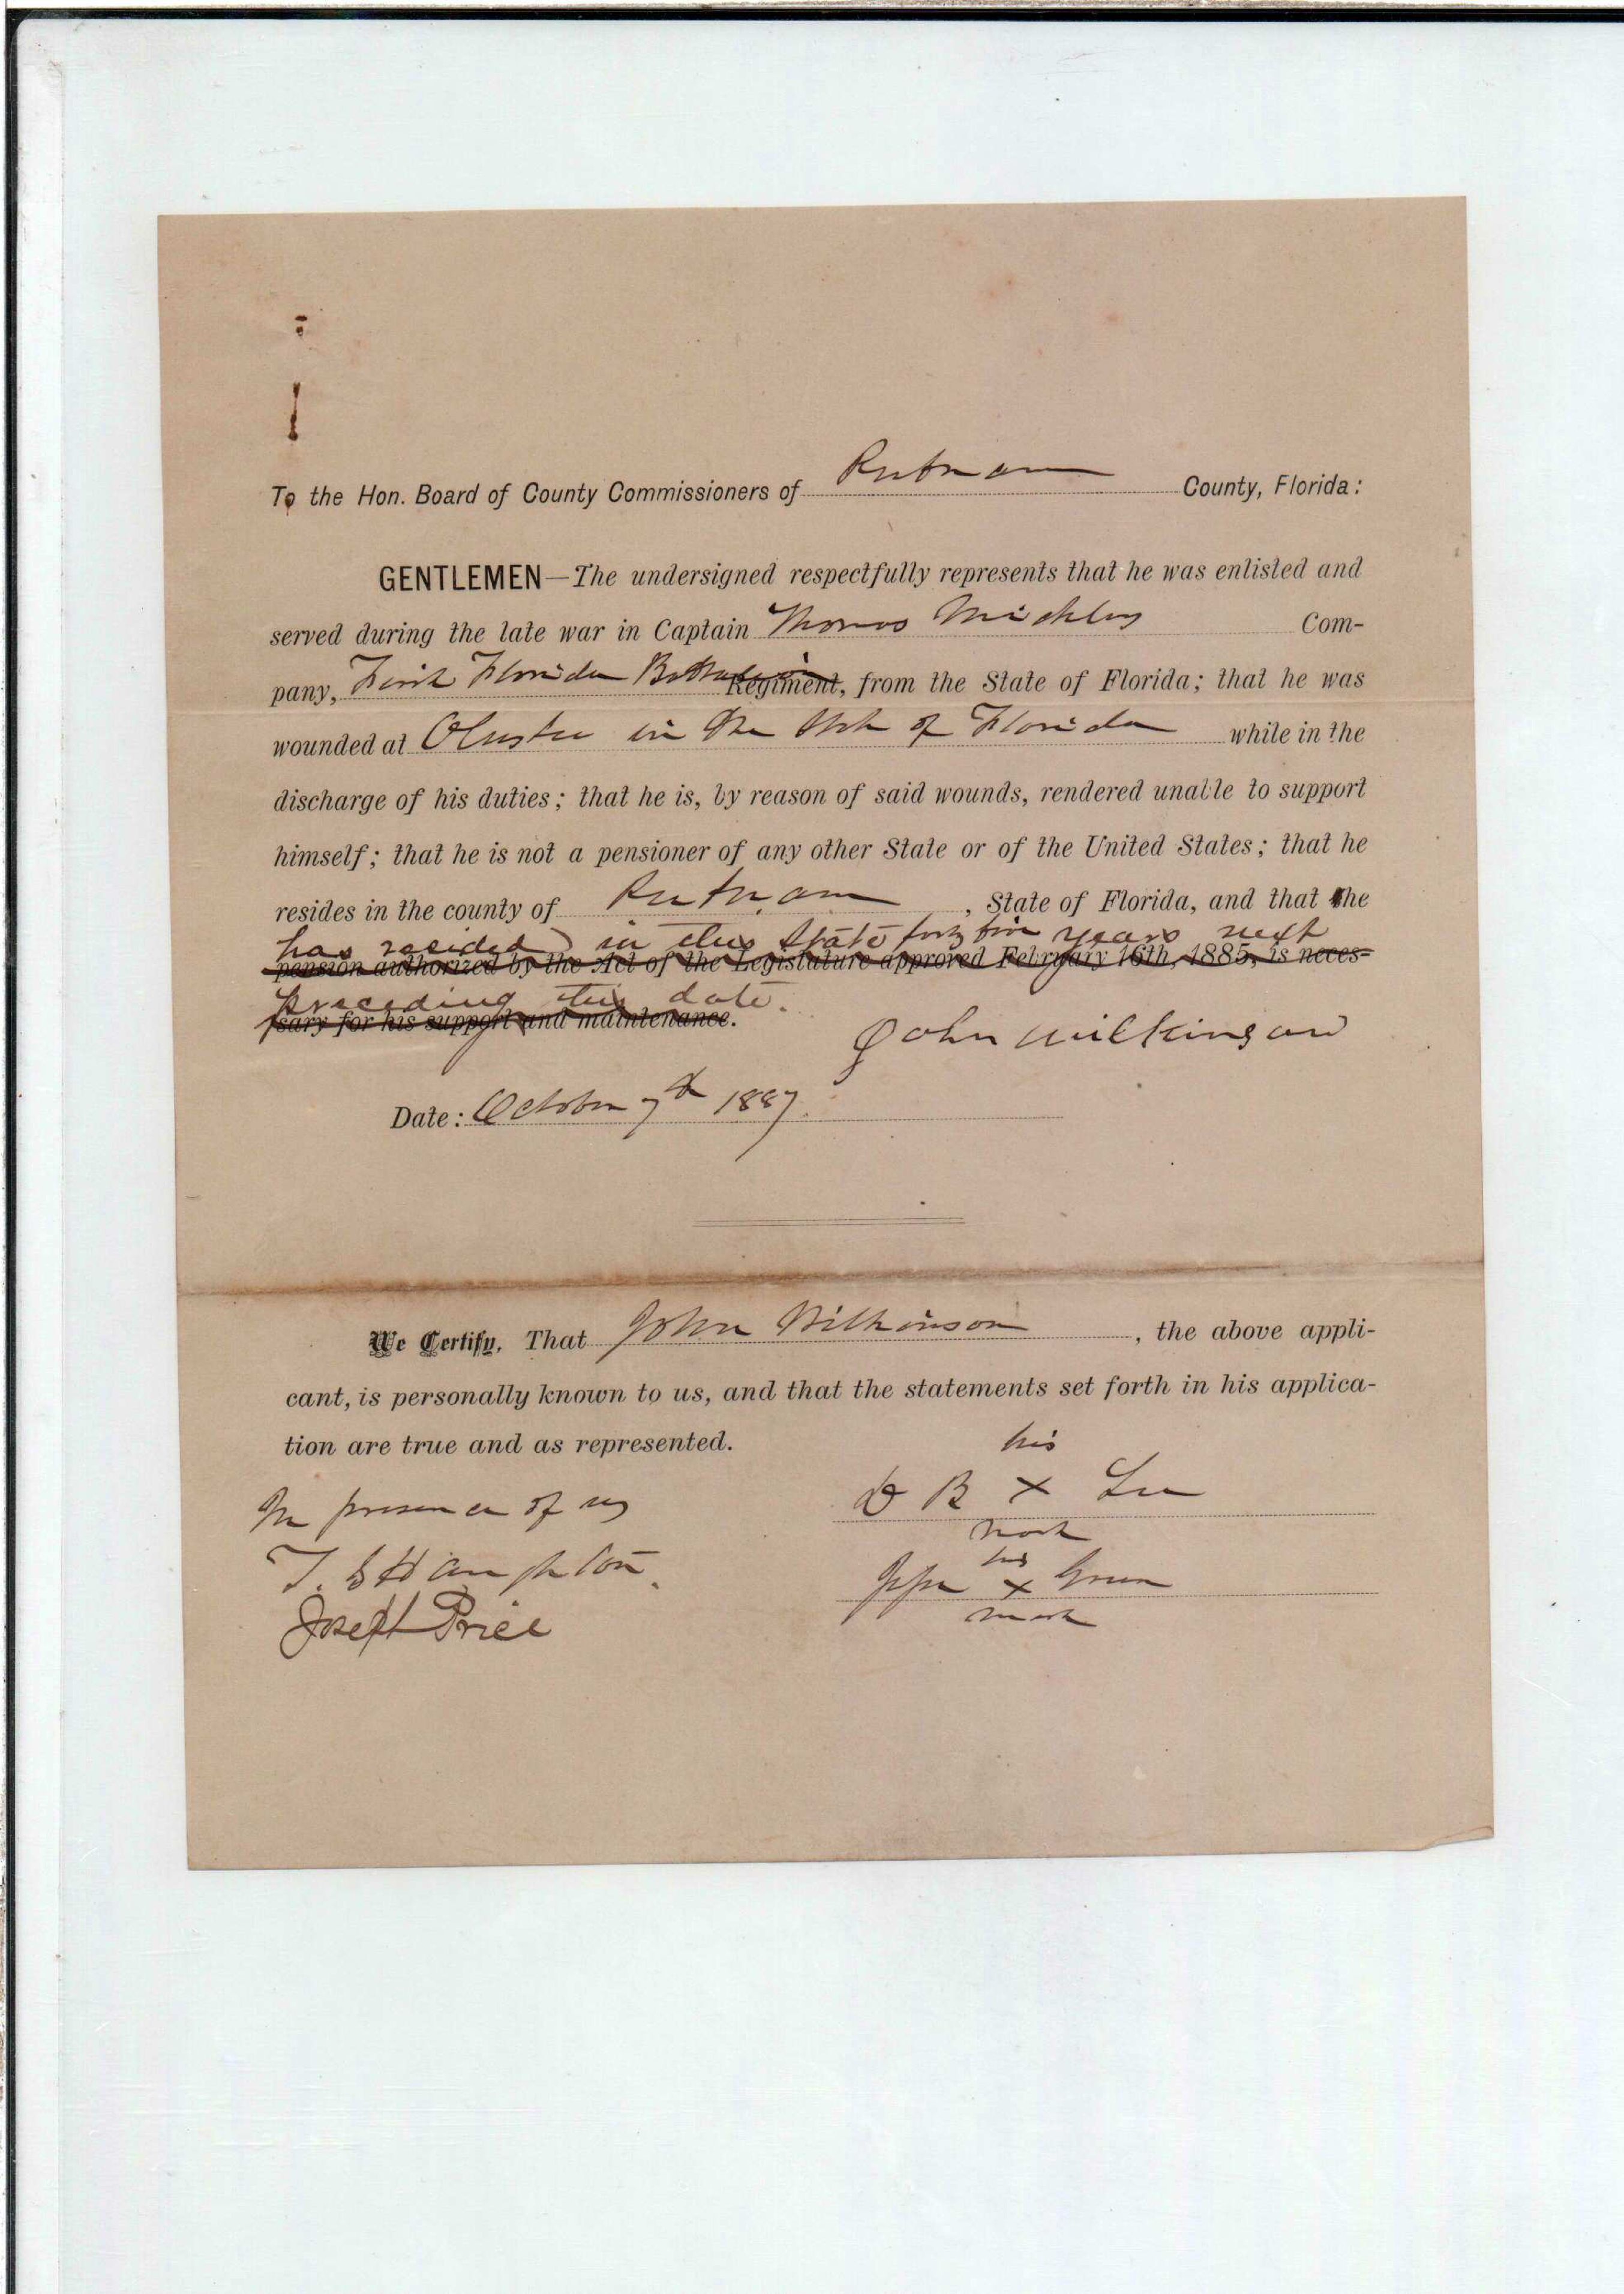 To the Hon. Board of County Commissioners of Putnam County, Florida:
GENTLEMEN—The undersigned respectfully represents that he was enlisted and
served during the late war in Captain Thomas Com-
pany, First Florida Battalion Regiment, from the State of Florida; that he was
wounded at Olustee in the State of Florida while in the
discharge of his duties; that he is, by reason of said wounds, rendered unable to support
himself; that he is not a pensioner of any other State or of the United States; that he
resides in the county of Putnam, State of Florida, and that the
has resided in this State forty five years next
pension authorized by the Act of the Legislature approved February 16th, 1885, is neces-
preceding this date.
sary for his support and maintenance.
John Wilkinson
Date: October 7th 1887.
We Certify, That John Wilkinson, the above appli-
cant, is personally known to us, and that the statements set forth in his applica-
tion are true and as represented.
his
In presence of us
D B x Lee
mark
T. S Haughton.
his
x Green
Joseph Price
mark